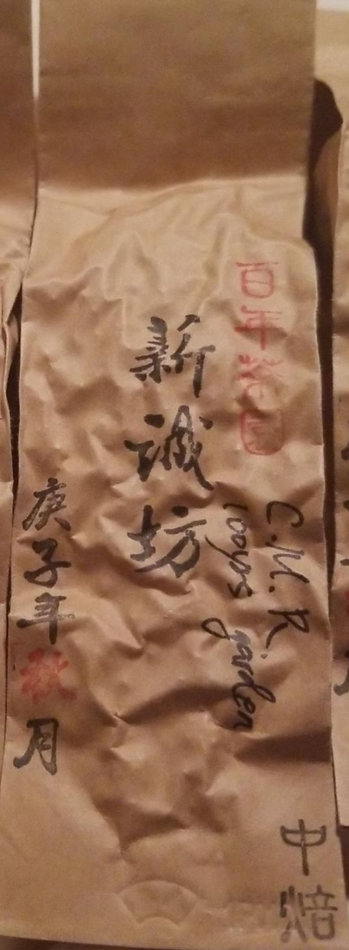 百年茶园
C.M.R
100yrs garden
新诚坊
庚子年秋月
中焙